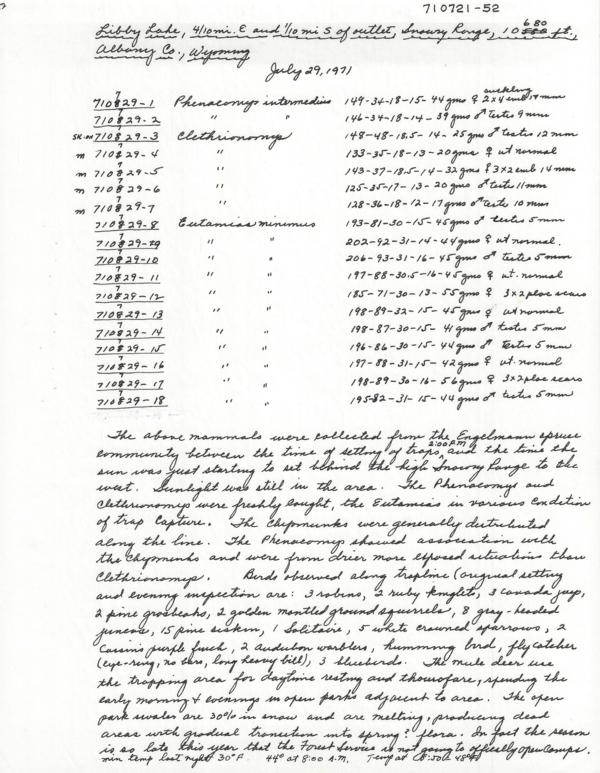 710721-52
Libby Lake, 4/10 mi. E and 1/10 mi S of outlet, Snowy Range, 10 680 ft,
Albany Co., Wyoming
July 29, 1971
suckling
710729-1 Phenacomys intermedius 149-34-18-15-44 gms ♀ 2x4 emb 14 mm
710729-2 " " 146-34-18-14-39 gms ♂ testes 9 mm
SK-m 710729-3 Clethrionomys 148-48-18.5-14-25 gms ♂ testes 12 mm
m 710729-4 " 133-35-18-13-20 gms ♀ ut normal
m 710729-5 " 143-37-18.5-14-32 gms ♀ 3x2 emb 14 mm
m 710729-6 " 125-35-17-13-20 gms ♂ testes 11 mm
m 710729-7 " 128-36-18-12-17 gms ♂ testes 10 mm
710729-8 Eutamias minimus 193-81-30-15-45 gms ♂ testes 5 mm
710729-9 " " 202-92-31-14-44 gms ♀ ut normal.
710729-10 " " 206-93-31-16-45 gms ♂ testes 5 mm
710729-11 " " 197-88-30.5-16-45 gms ♀ ut. normal
710729-12 " " 185-71-30-13-55 gms ♀ 3x2 plac scars
710729-13 " " 198-89-32-15-45 gms ♀ ut normal
710729-14 " " 198-87-30-15-41 gms ♂ testes 5 mm
710729-15 " " 196-86-30-15-44 gms ♂ testes 5 mm
710729-16 " " 197-88-31-15-42 gms ♀ ut. normal
710729-17 " " 198-89-30-16-56 gms ♀ 3x2 plac scars
710729-18 " " 195-82-31-15-44 gms ♂ testes 5 mm
The above mammals were collected from the Engelmann spruce
community between the time of setting of traps, 2:00 P.M. and the time the
sun was just starting to set behind the high Snowy Range to the
west. Sunlight was still in the area. The Phenacomys and
Clethrionomys were freshly caught, the Eutamias in various condition
of trap capture. The chipmunks were generally distributed
along the line. The Phenacomys showed association with
the chipmunks and were from drier more exposed situations than
Clethrionomys. Birds observed along trapline (original setting
and evening inspection are: 3 robins, 2 ruby kinglets, 3 Canada jays,
2 pine grosbeaks, 2 golden mantled ground squirrels, 8 gray-headed
juncos, 15 pine siskin, 1 Solitaire, 5 white crowned sparrows, 2
Cassin's purple finch, 2 audubon warblers, humming bird, flycatcher
(eye-ring, no bars, long heavy bill), 3 bluebirds. The mule deer use
the trapping area for daytime resting and thorofare, spending the
early morning & evenings in open parks adjacent to area. The open
park swales are 30% in snow and are melting, producing dead
areas with gradual transition into spring? flora. In fact the season
is so late this year that the Forest Service is not going to officially open Camps.
min temp last night 30°F. 44° at 8:00 A.M. Temp at 48°F